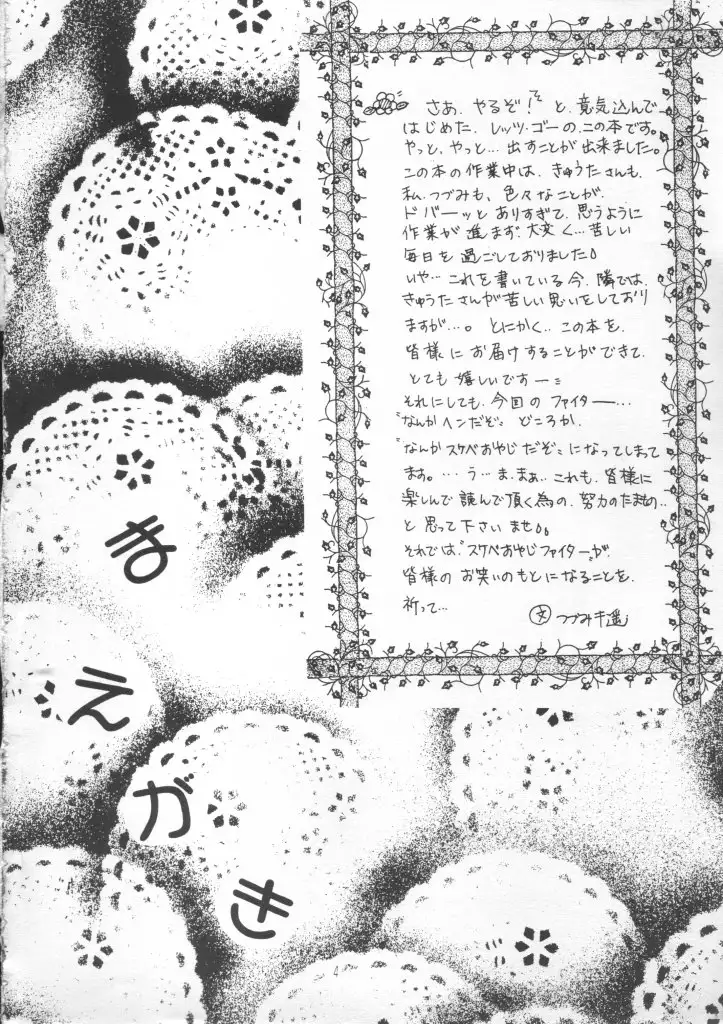 さあ、やるぞ！と、意気込んで
はじめた、レッツ・ゴーの、この本です。
やっと、やっと…出すことが出来ました。
この本の作業中は、きゅうたさんも、
私、つづみも、色々なことが、
ドバーッとありすぎて、思うように
作業が進まず、大変く…苦しい
毎日を過ごしておりました。
いや…これを書いている今、隣では、
きゅうたさんが苦しい思いをしており
ますが…。とにかく、この本を、
皆様にお届けすることができて、
とても嬉しいですー
それにしても、今回のファイター…
"なんかヘンだぞ"どころか、
"なんかスケベおやじだぞ"になってしまって
ます。…う…ま、まぁ、これも、皆様に
楽しんで読んで頂く為の、努力のたまもの…
と思って下さいませ。
それでは、"スケベおやじファイター"が、
皆様のお笑いのもとになることを、
祈って…
文 つづみ 遥
まえがき
4